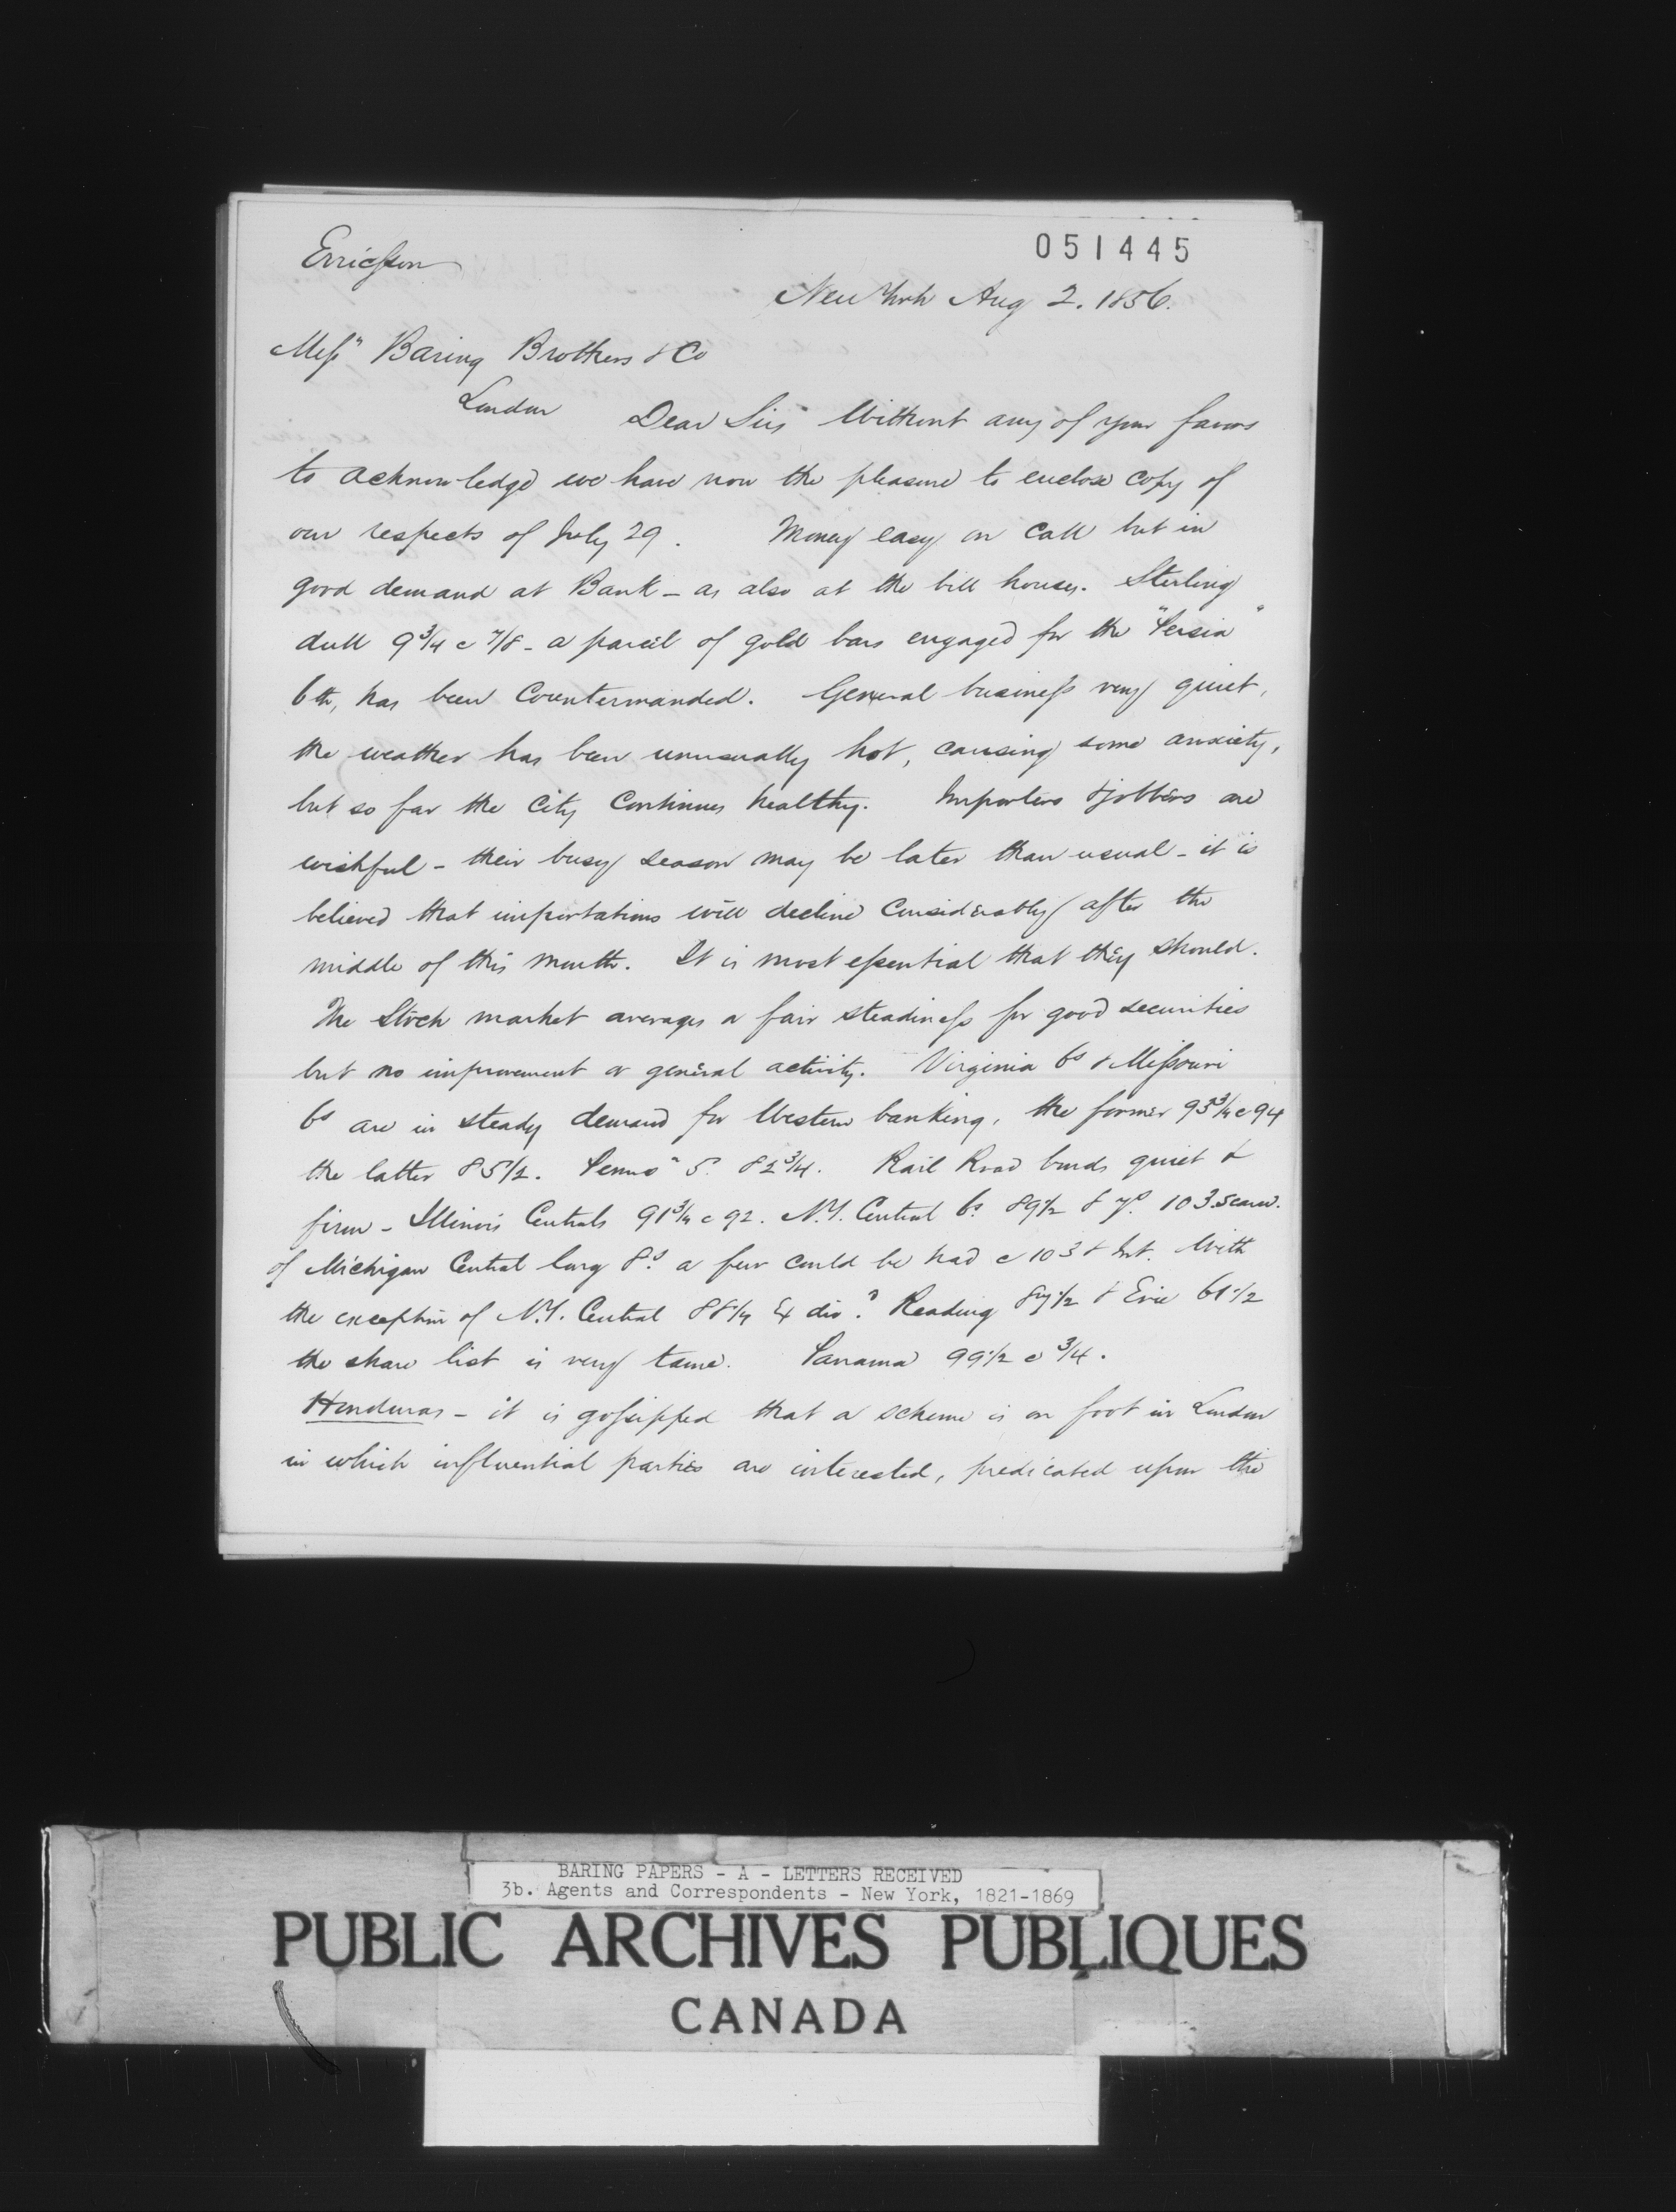 Ericsson
051445
New York Aug 2. 1856.
Mess" Baring Brothers & Co
London Dear Sirs Without any of your favors
to acknowledge we have now the pleasure to enclose copy of
our respects of July 29. Money easy on Call but in
good demand at Bank - as also at the bill houses. Sterling
dull 9 3/4 @ 7/8 - a parcel of gold bars engaged for the "Persia"
6th, has been Countermanded. General business very quiet,
the weather has been unusually hot, causing some anxiety,
but so far the City Continues healthy. Importers & jobbers are
wishful - their busy season may be later than usual - it is
believed that importations will decline Considerably after the
middle of this month. It is most essential that they should.
The Stock market averages a fair steadiness for good securities
but no improvement or general activity. Virginia 6s & Missouri
6s are in steady demand for Western banking, the former 93 3/4 @ 94
the latter 85 1/2. Penns" 5. 82 3/4. Rail Road bonds quiet &
firm - Illinois Centrals 91 3/4 @ 92. N.Y. Central 6s. 89 1/2 & 7s. 103. scarce.
of Michigan Central long 8s. a few could be had @ 103 & Int. With
the exception of N.Y. Central 88 1/4 Ex divd. Reading 89 1/2 & Erie 61 1/2
the share list is very tame. Panama 99 1/2 @ 3/4.
Honduras - it is gossipped that a scheme is on foot in London
in which influential parties are interested, predicated upon the
BARING PAPERS - A - LETTERS RECEIVED
3b. Agents and Correspondents - New York, 1821-1869
PUBLIC ARCHIVES PUBLIQUES
CANADA